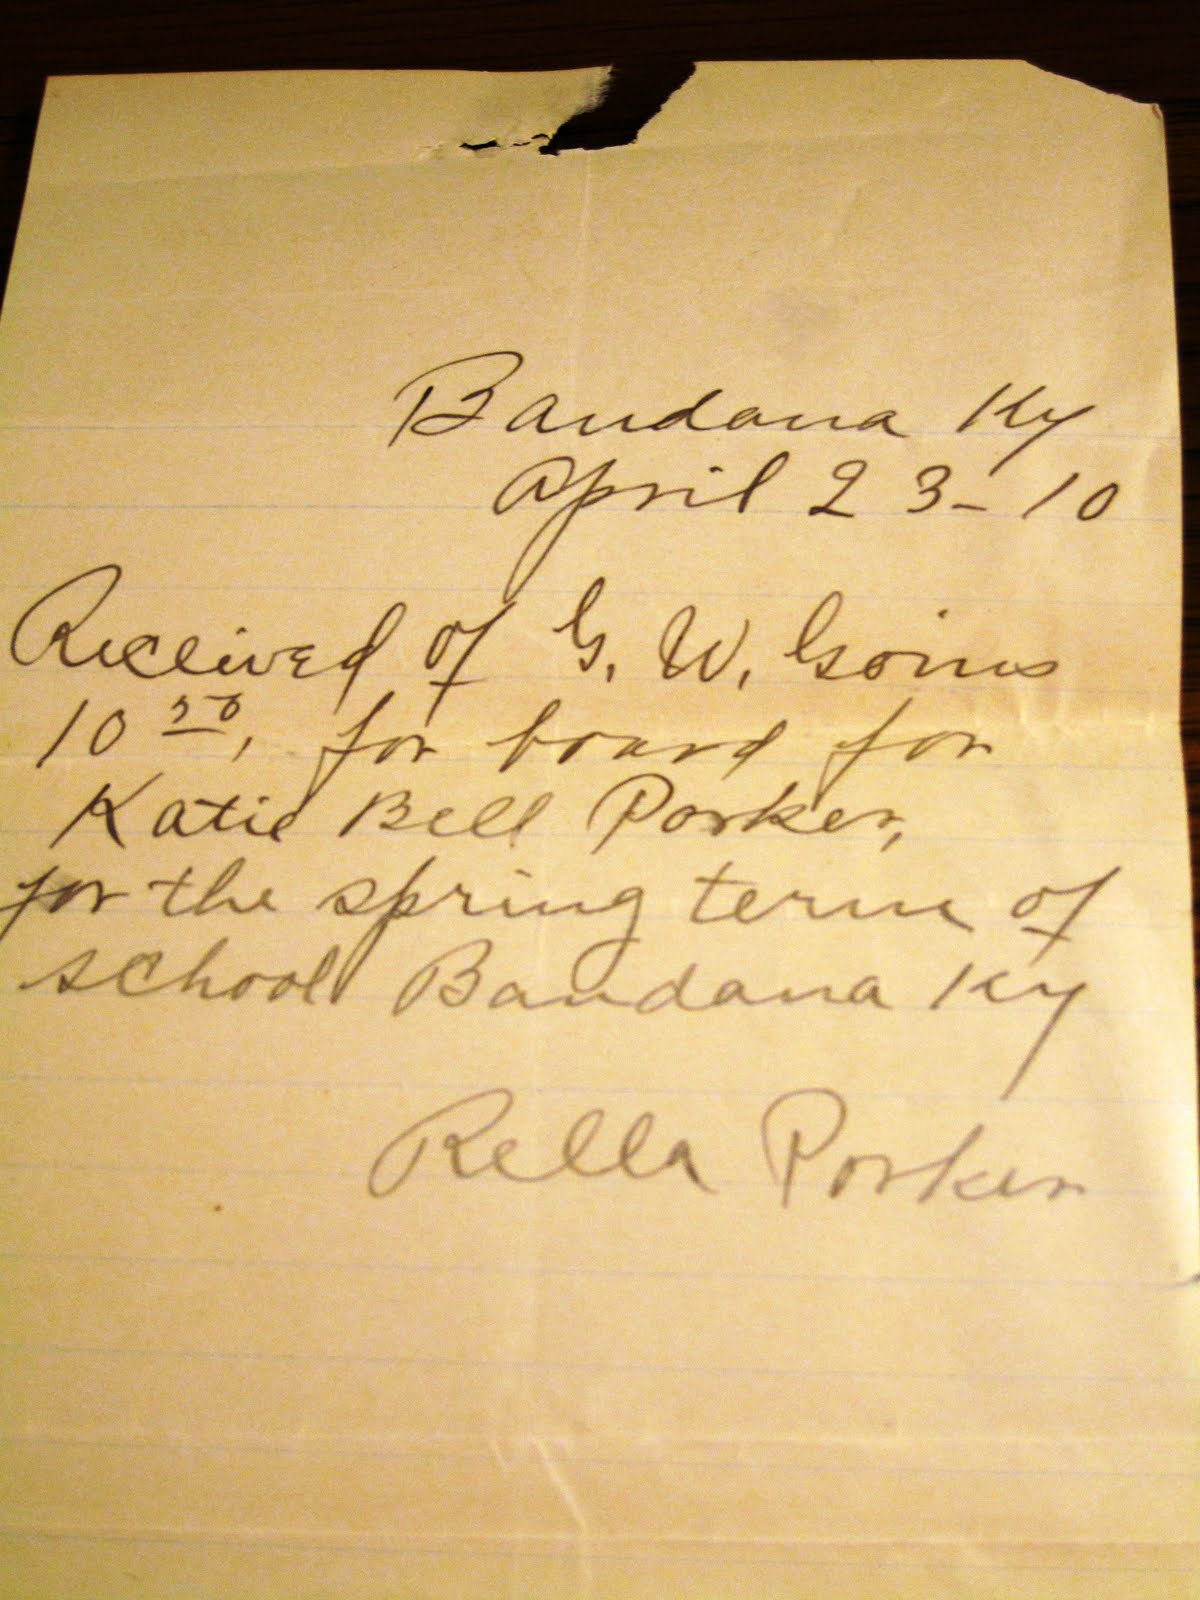 Bandana Ky
April 23-10
Received of G. W. Goins
10 50, for board for
Katie Bell Porker,
for the spring term of
school Bandana Ky
Rella Porker